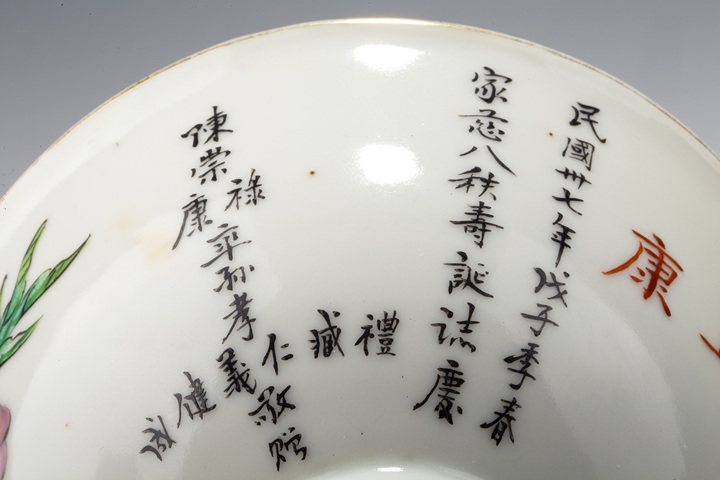 康
民國卅七年戊子季春
家慈八秩壽誕誌慶
陳崇祿康率孫孝禮臧仁義健成敬贈